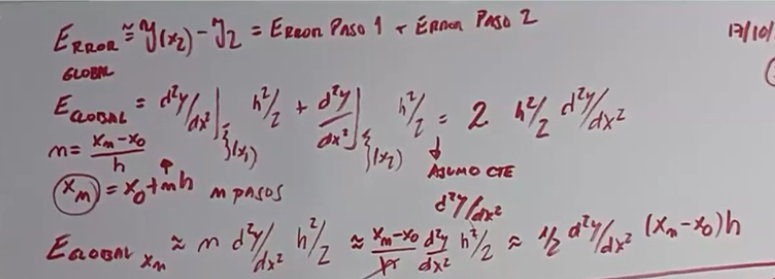 ERROR ≅ y(x₂) - y₂ = ERROR PASO 1 + ERROR PASO 2
GLOBAL
17/10/
E GLOBAL = d²y/dx²|ξ(x₁) h²/2 + d²y/dx²|ξ(x₂) h²/2 = 2 h²/2 d²y/dx²
m = (xm-x₀)/h
ASUMO CTE
d²y/dx²
xm = x₀ + mh m PASOS
E GLOBAL xm ≈ m d²y/dx² h²/2 ≈ (xm-x₀)/h d²y/dx² h²/2 ≈ 1/2 d²y/dx² (xm-x₀)h